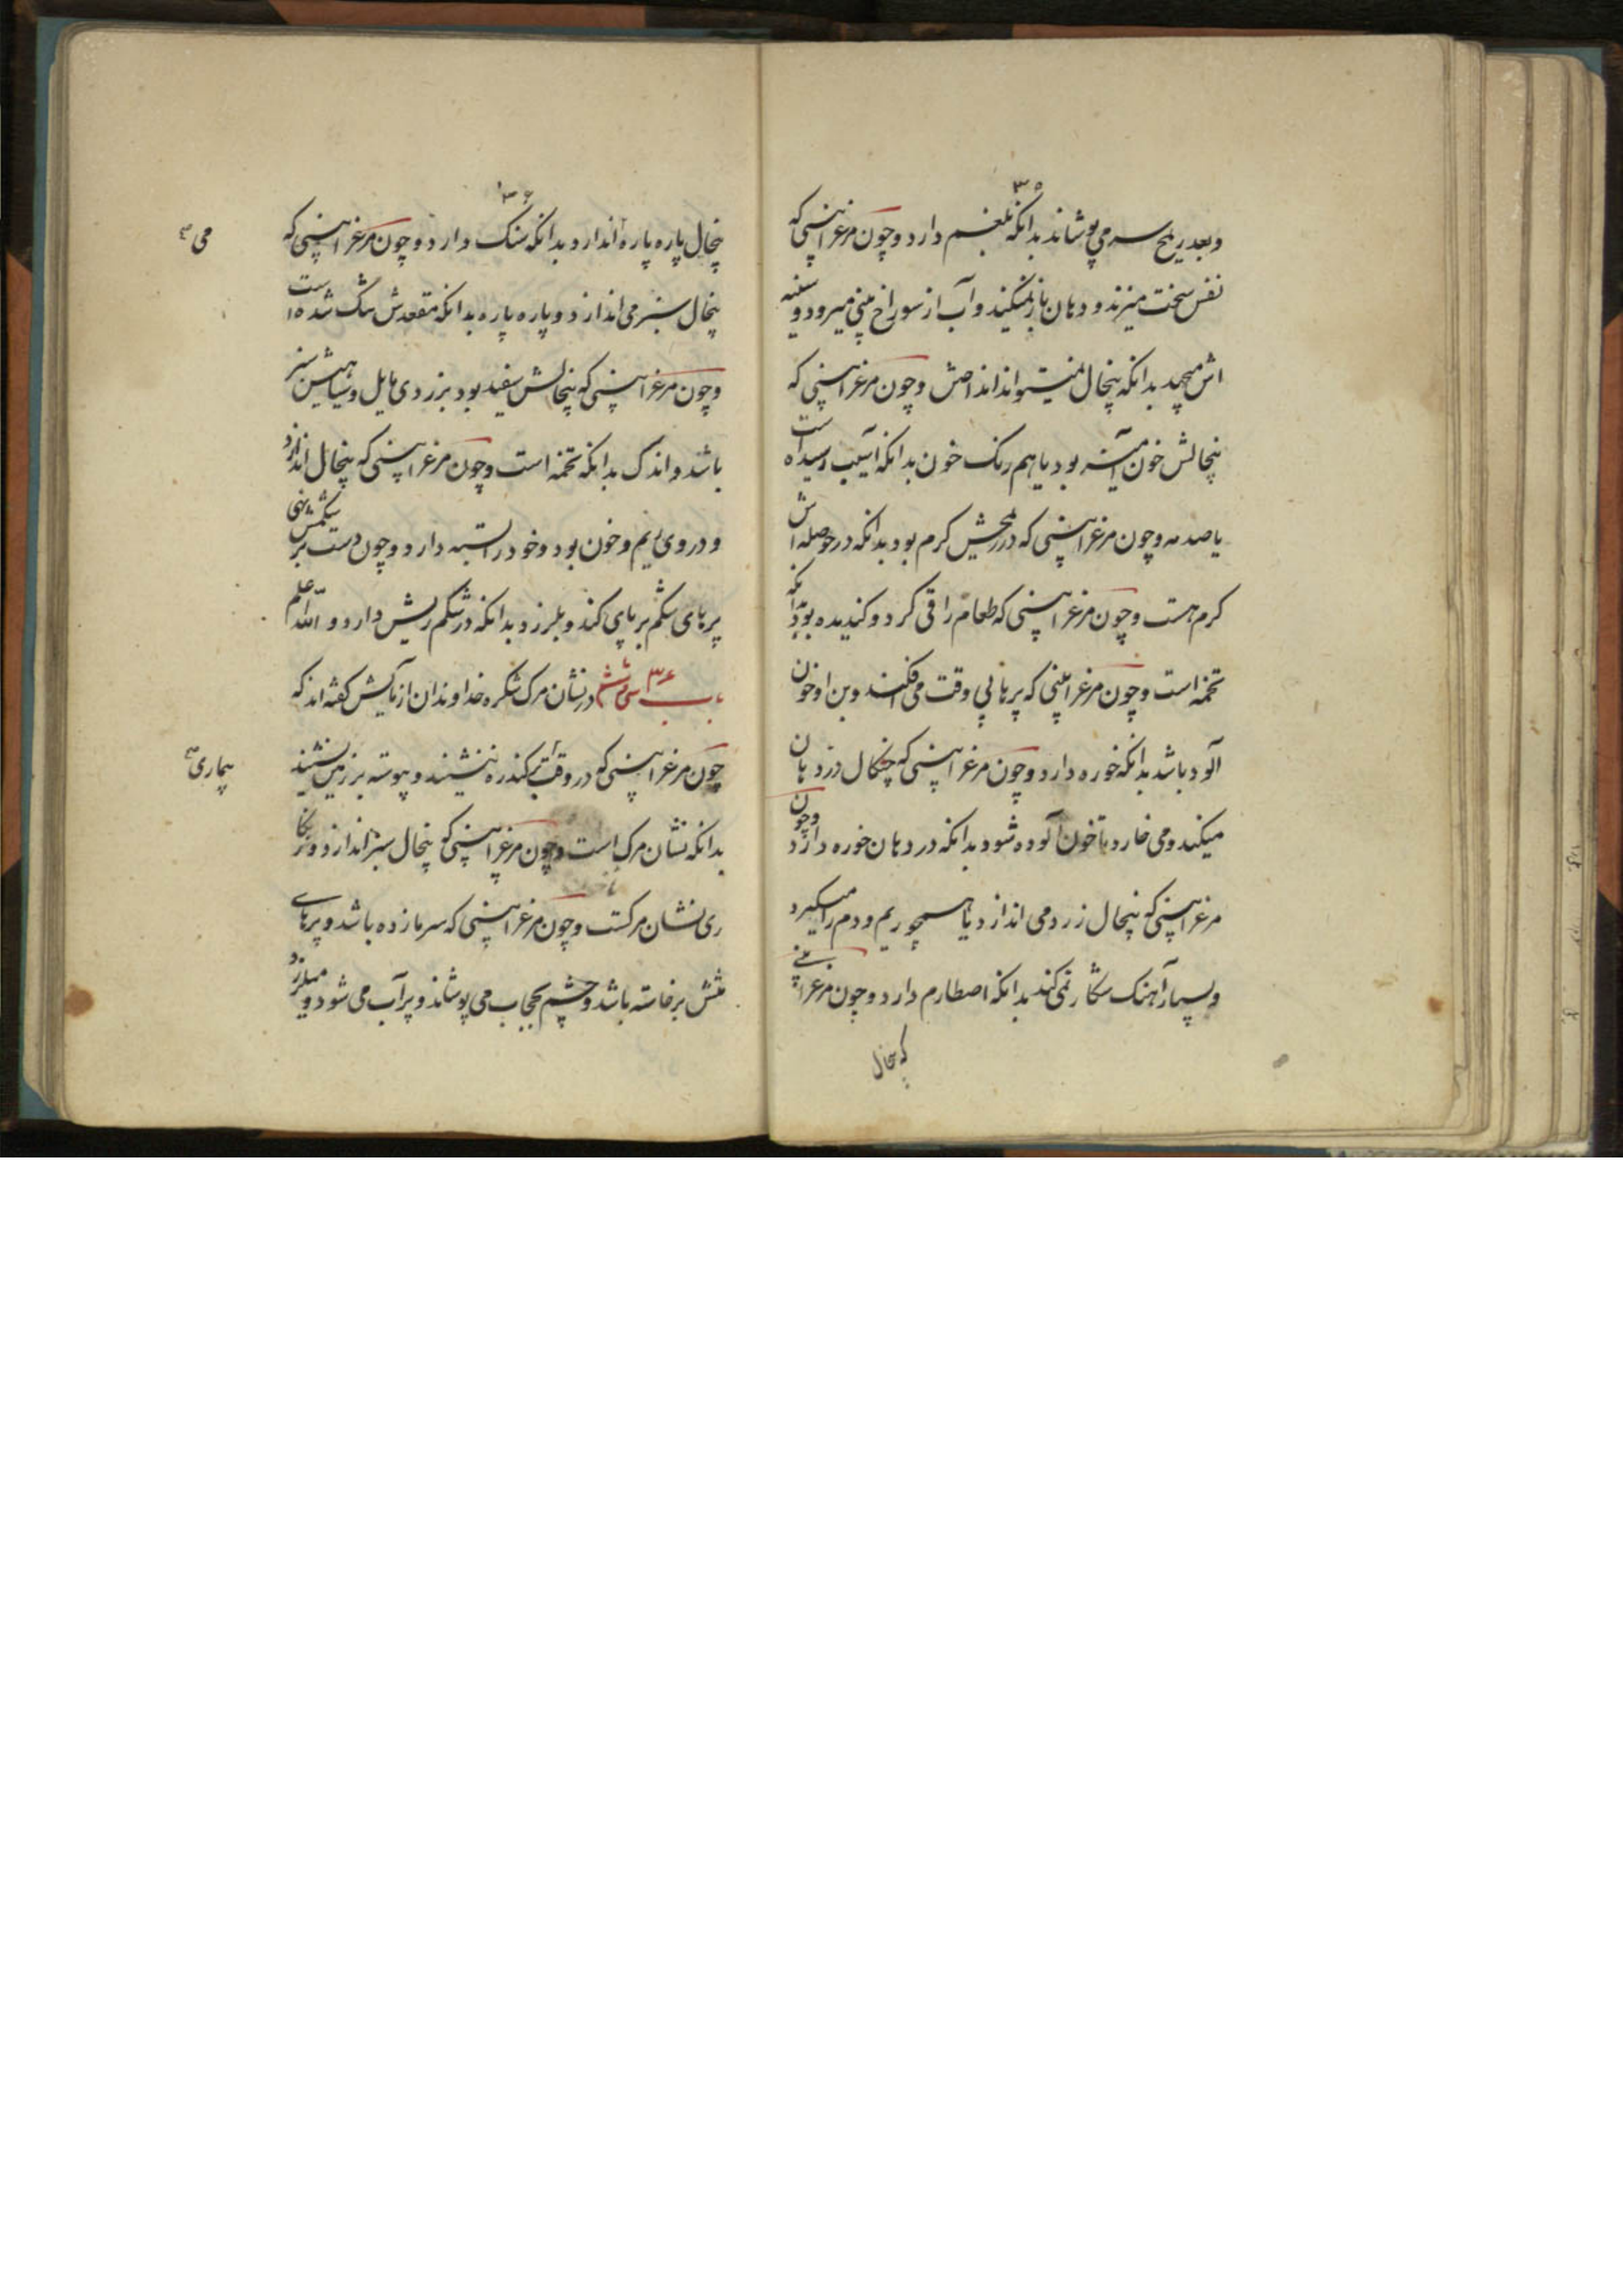 ۳۵
وبعد ریح سر می پوشاند بدانکه بلغم دارد و چون مرغ را بینی که
نفس سخت میزند و دهان باز نمیکند و آب از سوراخ بینی میرود و سینه
اش میچد بدانکه پنچال نمیتواند انداختن و چون مرغ را بینی که
پنچالش خون آمیز بود یا هم رنک خون بدانکه آسیب رسیده است
یا صدمه و چون مرغ را بینی که در کرم بود بدانکه در حوصله اش
کرم هست و چون مرغ را بینی که طعام را قی کرد و کندیده بود بدانکه
تخمه است و چون مرغ را بینی که پرها بی وقت می افکند و بن او خون
آلود باشد بدانکه خوره دارد و چون مرغ را بینی که چنکال در دهان
میکند و می خارد تا خون آلوده شود بدانکه در دهان خوره دارد و چون
مرغ را بینی که پنچال زرد می اندازد یا همچو ریم و دم را میکیرد
و بسیار آهنک شکار نمی کند بدانکه اصطارم دارد و چون مرغ را بینی
که پنچال
۳۶
پنچال پاره پاره اندازد بدانکه سنک دارد و چون مرغ را بینی که
می
پنچال سبز می اندازد و پاره پاره بدانکه مقعدش تنک شده است
و چون مرغ را بینی که پنچالش سفید بود بزردی مایل و سیاهیش سبز
باشد و اندک بدانکه تخمه است و چون مرغ را بینی که پنچال اندازد
و در وی ریم و خون بود و خود را بسته دارد و چون دست بر شکمش نهی
پرهای شکم بر پای کند و بلرزد بدانکه در شکم ریش دارد و الله اعلم
باب سی و ششم ۳۶ در نشان مرک شکره خداوندان آزمایش کفته اند که
چون مرغ را بینی که در وقت بر کندره ننشیند و پیوسته بر زمین نشیند
بیماری
بدانکه نشان مرک است و چون مرغ را بینی که پنچال سبز اندازد و زنکا
ری نشان مرکست و چون مرغ را بینی که سرما زده باشد و پرهای
منش برخاسته باشد و چشم بحجاب می پوشاند و پر آب می شود و میلرزد